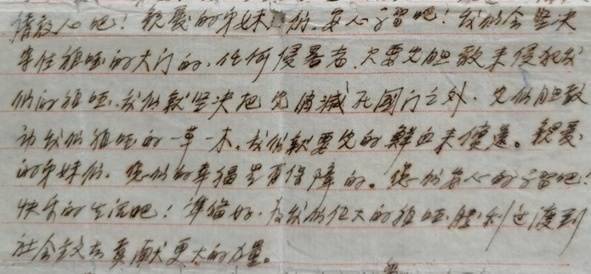 请放心吧！亲爱的弟妹们，安心学习吧！我们会坚决
守住祖国的大门的，任何侵略者，只要他胆敢来侵犯我
们的祖国，我们就坚决把他消灭在国门之外，他们胆敢
动我们祖国的一草一木，我们就要他的鲜血来偿还。亲爱
的弟妹们，您们的幸福是有保障的。您们安心的学习吧！
快乐的生活吧！准备好，为我们伟大的祖国，胜利过渡到
社会主义去贡献更大的力量。